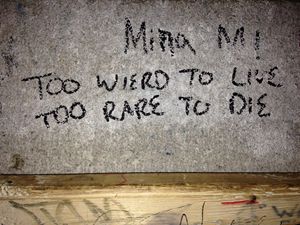 Mina M!
TOO WIERD TO LIVE
TOO RARE TO DIE